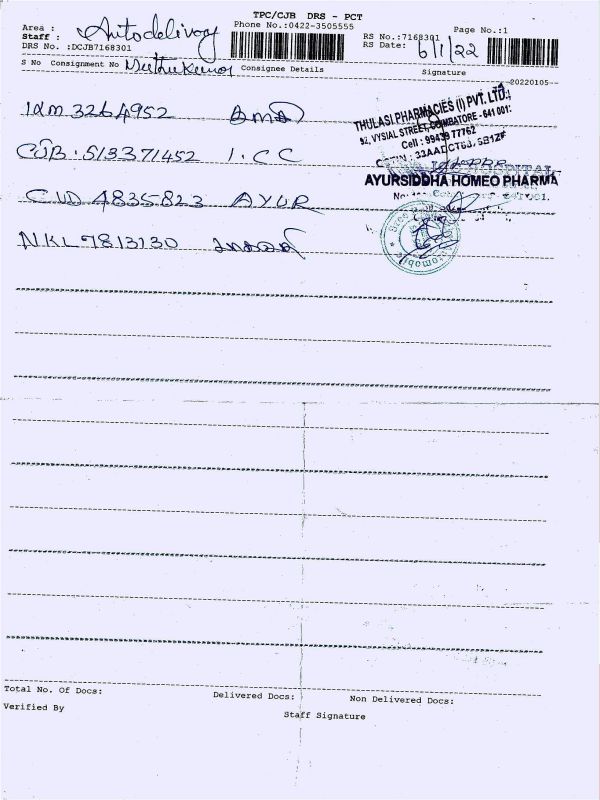 TPC/CJB DRS - PCT
Area :
Autodelivoy
Staff :
Phone No.:0422-3505555
Page No.:1
RS No.:7168301
DRS No. :DCJB7168301
RS Date: 6/1/22
S No Consignment No Muthu Kumar Consignee Details
Signature
20220105
IXM 3264952
CJB. 513371452 I. C C
CUD 4835823 AYUR
NKL 7813130
THULASI PHARMACIES (I) PVT. LTD.,
92, VYSIAL STREET, COIMBATORE - 641 001.
Cell : 99439 77762
HOSPITAL
AYURSIDDHA HOMEO PHARMA
Total No. Of Docs:
Delivered Docs:
Non Delivered Docs:
Verified By
Staff Signature